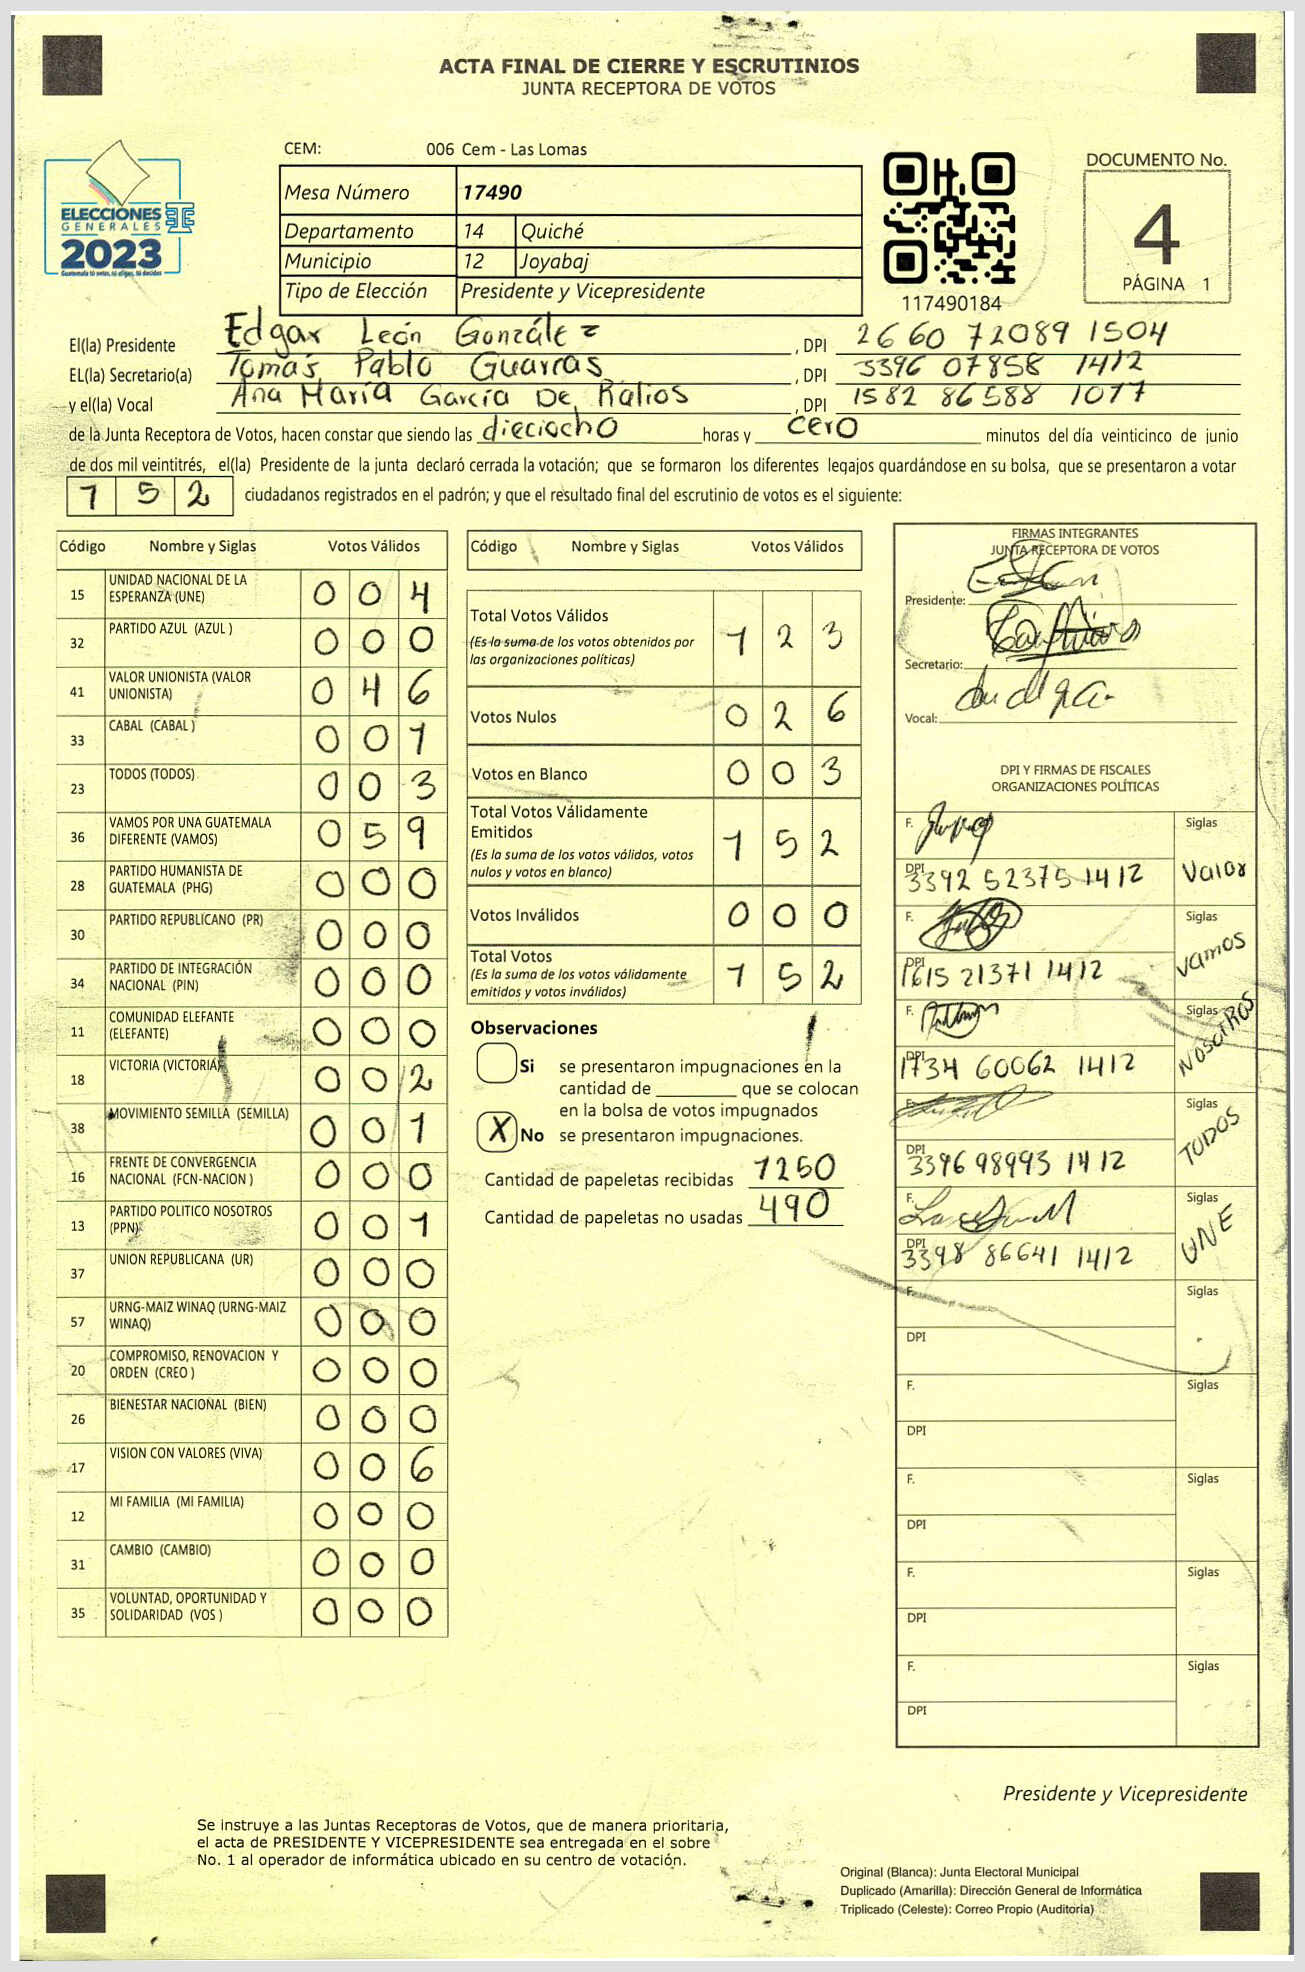 ACTA FINAL DE CIERRE Y ESCRUTINIOS
JUNTA RECEPTORA DE VOTOS
ELECCIONES
GENERALES
2023
Guatemala tú votas, tú eliges, tú decides
CEM: 006 Cem - Las Lomas
Mesa Número 17490
Departamento 14 Quiché
Municipio 12 Joyabaj
Tipo de Elección Presidente y Vicepresidente
117490184
DOCUMENTO No.
4
PÁGINA 1
El(la) Presidente Edgar León González , DPI 2660 72089 1504
EL(la) Secretario(a) Tomás Pablo Guarcas , DPI 3396 07858 1412
y el(la) Vocal Ana María García De Ralios , DPI 1582 86588 1077
de la Junta Receptora de Votos, hacen constar que siendo las dieciocho horas y cero minutos del día veinticinco de junio
de dos mil veintitrés, el(la) Presidente de la junta declaró cerrada la votación; que se formaron los diferentes legajos guardándose en su bolsa, que se presentaron a votar
152 ciudadanos registrados en el padrón; y que el resultado final del escrutinio de votos es el siguiente:
Código Nombre y Siglas Votos Válidos
15 UNIDAD NACIONAL DE LA ESPERANZA (UNE) 0 0 4
32 PARTIDO AZUL (AZUL ) 0 0 0
41 VALOR UNIONISTA (VALOR UNIONISTA) 0 4 6
33 CABAL (CABAL ) 0 0 1
23 TODOS (TODOS) 0 0 3
36 VAMOS POR UNA GUATEMALA DIFERENTE (VAMOS) 0 5 9
28 PARTIDO HUMANISTA DE GUATEMALA (PHG) 0 0 0
30 PARTIDO REPUBLICANO (PR) 0 0 0
34 PARTIDO DE INTEGRACIÓN NACIONAL (PIN) 0 0 0
11 COMUNIDAD ELEFANTE (ELEFANTE) 0 0 0
18 VICTORIA (VICTORIA) 0 0 2
38 MOVIMIENTO SEMILLA (SEMILLA) 0 0 1
16 FRENTE DE CONVERGENCIA NACIONAL (FCN-NACION ) 0 0 0
13 PARTIDO POLITICO NOSOTROS (PPN) 0 0 1
37 UNION REPUBLICANA (UR) 0 0 0
57 URNG-MAIZ WINAQ (URNG-MAIZ WINAQ) 0 0 0
20 COMPROMISO, RENOVACION Y ORDEN (CREO ) 0 0 0
26 BIENESTAR NACIONAL (BIEN) 0 0 0
17 VISION CON VALORES (VIVA) 0 0 6
12 MI FAMILIA (MI FAMILIA) 0 0 0
31 CAMBIO (CAMBIO) 0 0 0
35 VOLUNTAD, OPORTUNIDAD Y SOLIDARIDAD (VOS ) 0 0 0
Código Nombre y Siglas Votos Válidos
Total Votos Válidos 1 2 3
(Es la suma de los votos obtenidos por
las organizaciones políticas)
Votos Nulos 0 2 6
Votos en Blanco 0 0 3
Total Votos Válidamente
Emitidos 1 5 2
(Es la suma de los votos válidos, votos
nulos y votos en blanco)
Votos Inválidos 0 0 0
Total Votos 1 5 2
(Es la suma de los votos válidamente
emitidos y votos inválidos)
Observaciones
Si se presentaron impugnaciones en la
cantidad de ________ que se colocan
en la bolsa de votos impugnados
X No se presentaron impugnaciones.
Cantidad de papeletas recibidas 1250
Cantidad de papeletas no usadas 490
FIRMAS INTEGRANTES
JUNTA RECEPTORA DE VOTOS
Presidente:
Secretario:
Vocal:
DPI Y FIRMAS DE FISCALES
ORGANIZACIONES POLÍTICAS
F. Siglas
DPI 3392 52375 1412 Valor
F. Siglas
DPI 1615 21371 1412 Vamos
F. Siglas
DPI 1734 60062 1412 NOSOTROS
F. Siglas
DPI 3396 98993 1412 TODOS
F. Siglas
DPI 3398 86641 1412 UNE
F. Siglas
DPI
F. Siglas
DPI
F. Siglas
DPI
F. Siglas
DPI
F. Siglas
DPI
Presidente y Vicepresidente
Se instruye a las Juntas Receptoras de Votos, que de manera prioritaria,
el acta de PRESIDENTE Y VICEPRESIDENTE sea entregada en el sobre
No. 1 al operador de informática ubicado en su centro de votación.
Original (Blanca): Junta Electoral Municipal
Duplicado (Amarilla): Dirección General de Informática
Triplicado (Celeste): Correo Propio (Auditoria)